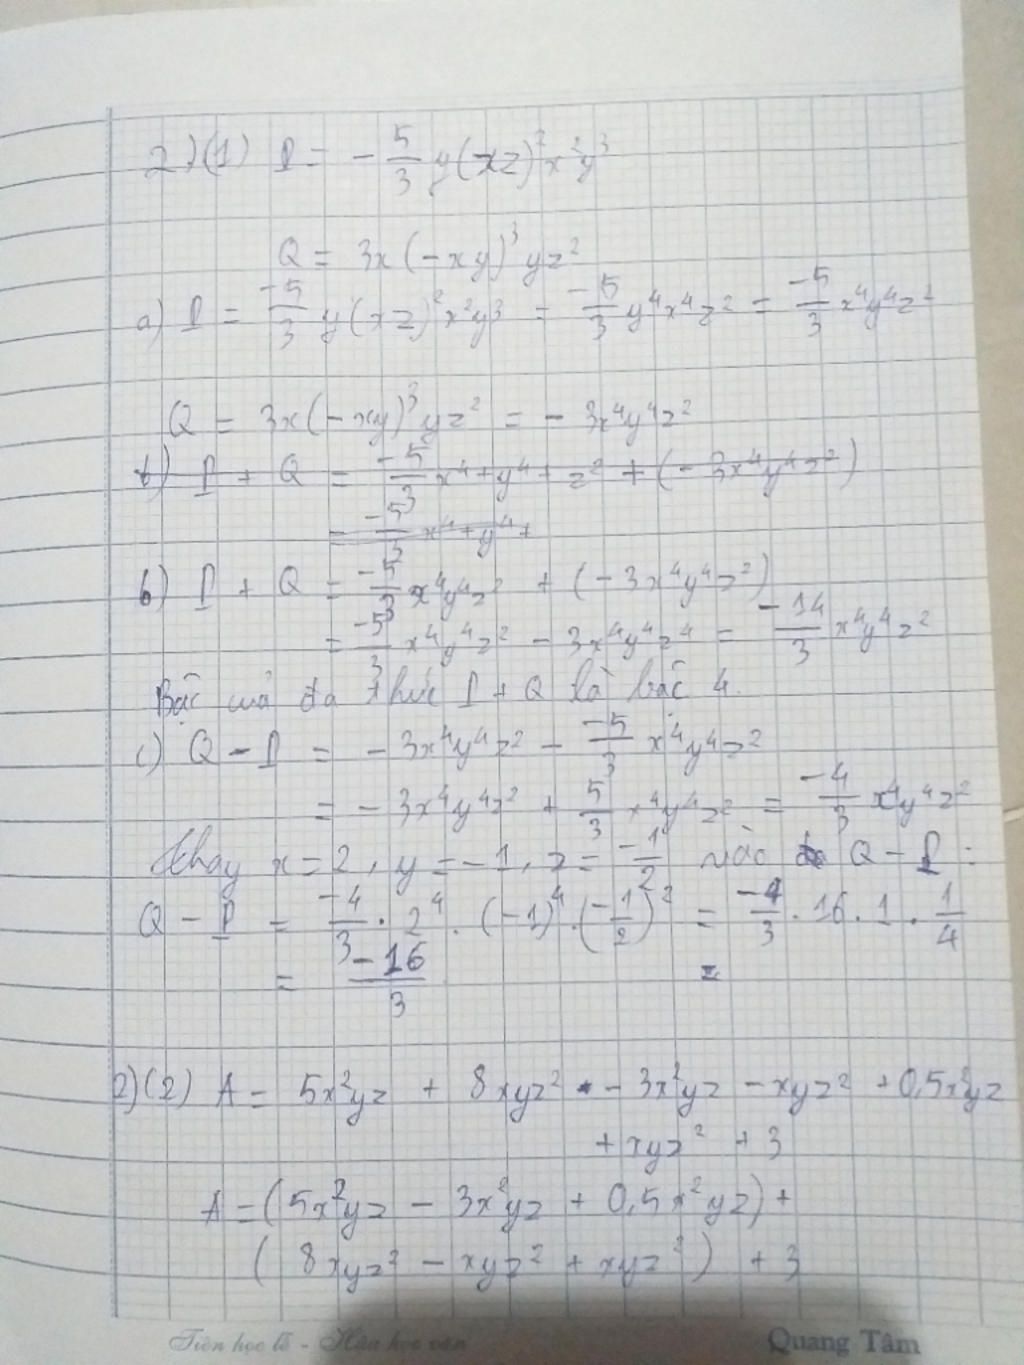 2)(1) P = - 5/3 y(xz)² x²y³
Q = 3x(-xy)³yz²
a) P = -5/3 y(xz)²x²y³ = -5/3 y⁴x⁴z² = -5/3 x⁴y⁴z²
Q = 3x(-xy)³yz² = - 3x⁴y⁴z²
b) P + Q = -5/3 x⁴+y⁴+ z² + (-3x⁴y⁴z²)
= -5/3 x⁴+y⁴+
b) P + Q = -5/3 x⁴y⁴z² + (-3x⁴y⁴z²)
= -5/3 x⁴y⁴z² - 3x⁴y⁴z⁴ = -14/3 x⁴y⁴z²
Bậc của đa thức P + Q là bậc 4.
c) Q - P = - 3x⁴y⁴z² - -5/3 x⁴y⁴z²
= - 3x⁴y⁴z² + 5/3 x⁴y⁴z² = -4/3 x⁴y⁴z²
Thay x = 2, y = -1, z = -1/2 vào Q - P :
Q - P = -4/3 . 2⁴ . (-1)⁴ . (-1/2)² = -4/3 . 16 . 1 . 1/4
= -16/3 =
2)(2) A = 5x²yz + 8xyz² - 3x²yz - xyz² + 0,5x²yz
+ xyz² + 3
A = (5x²yz - 3x²yz + 0,5x²yz) +
(8xyz² - xyz² + xyz²) + 3
Tiên học lễ - Hậu học văn Quang Tâm